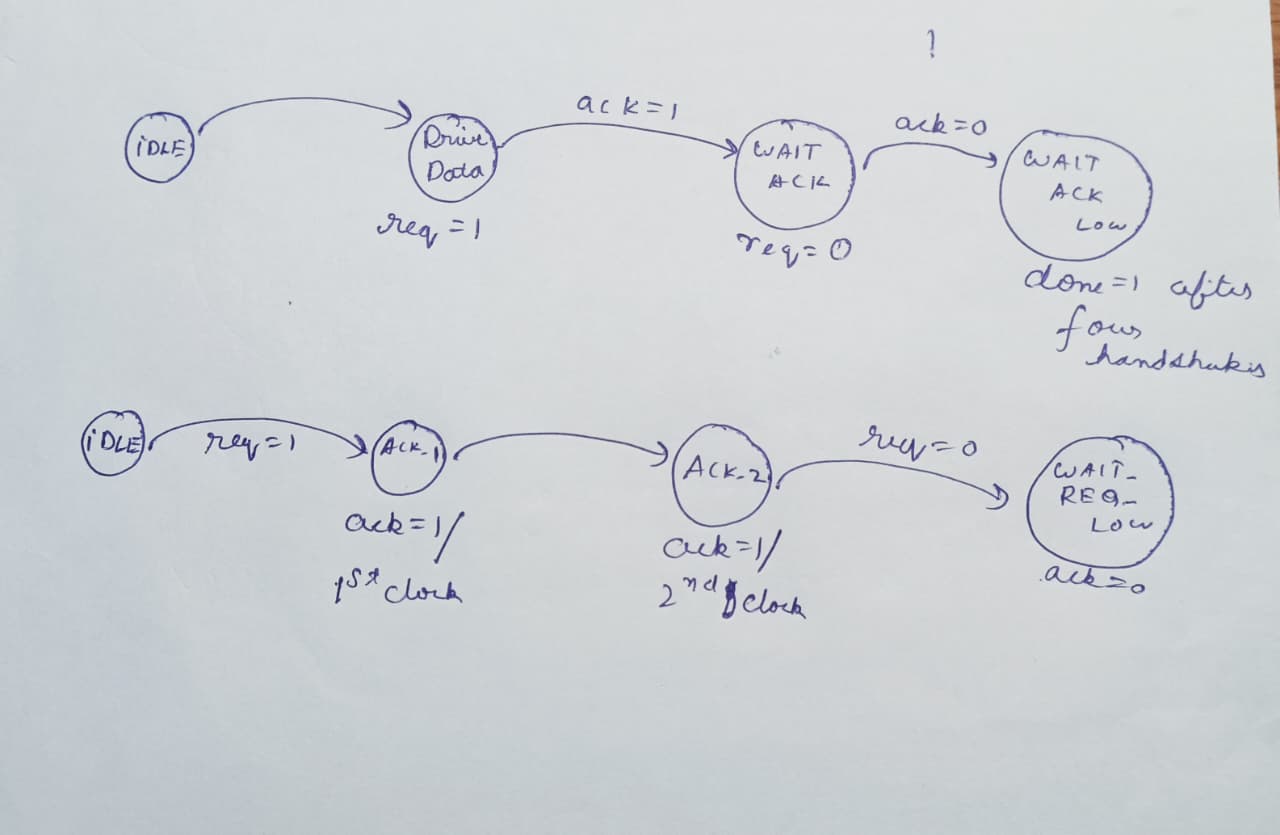 !
iDLE
Drive
Data
req=1
ack=1
WAIT
ACK
req=0
ack=0
WAIT
ACK
LOW
done=1 after
four
handshakes
iDLE
req=1
ACK_1
ack=1/
1st clock
ACK_2
ack=1/
2nd clock
req=0
WAIT_
REQ_
LOW
ack=0